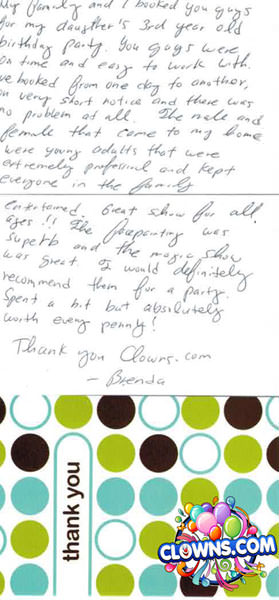 My family and I booked you guys
for my daughter's 3rd year old
birthday party. You guys were
on time and easy to work with.
We booked from one day to another,
on very short notice and there was
no problem at all. The male and
female that came to my home
were young adults that were
extremely professinal and kept
everyone in the family
entertained. Great show for all
ages!! The facepainting was
superb and the magic show
was great. I would definitely
recommend them for a party.
Spent a bit but absolutely
worth every penny!
Thank you Clowns.com
- Brenda
thank you
CLOWNS.COM